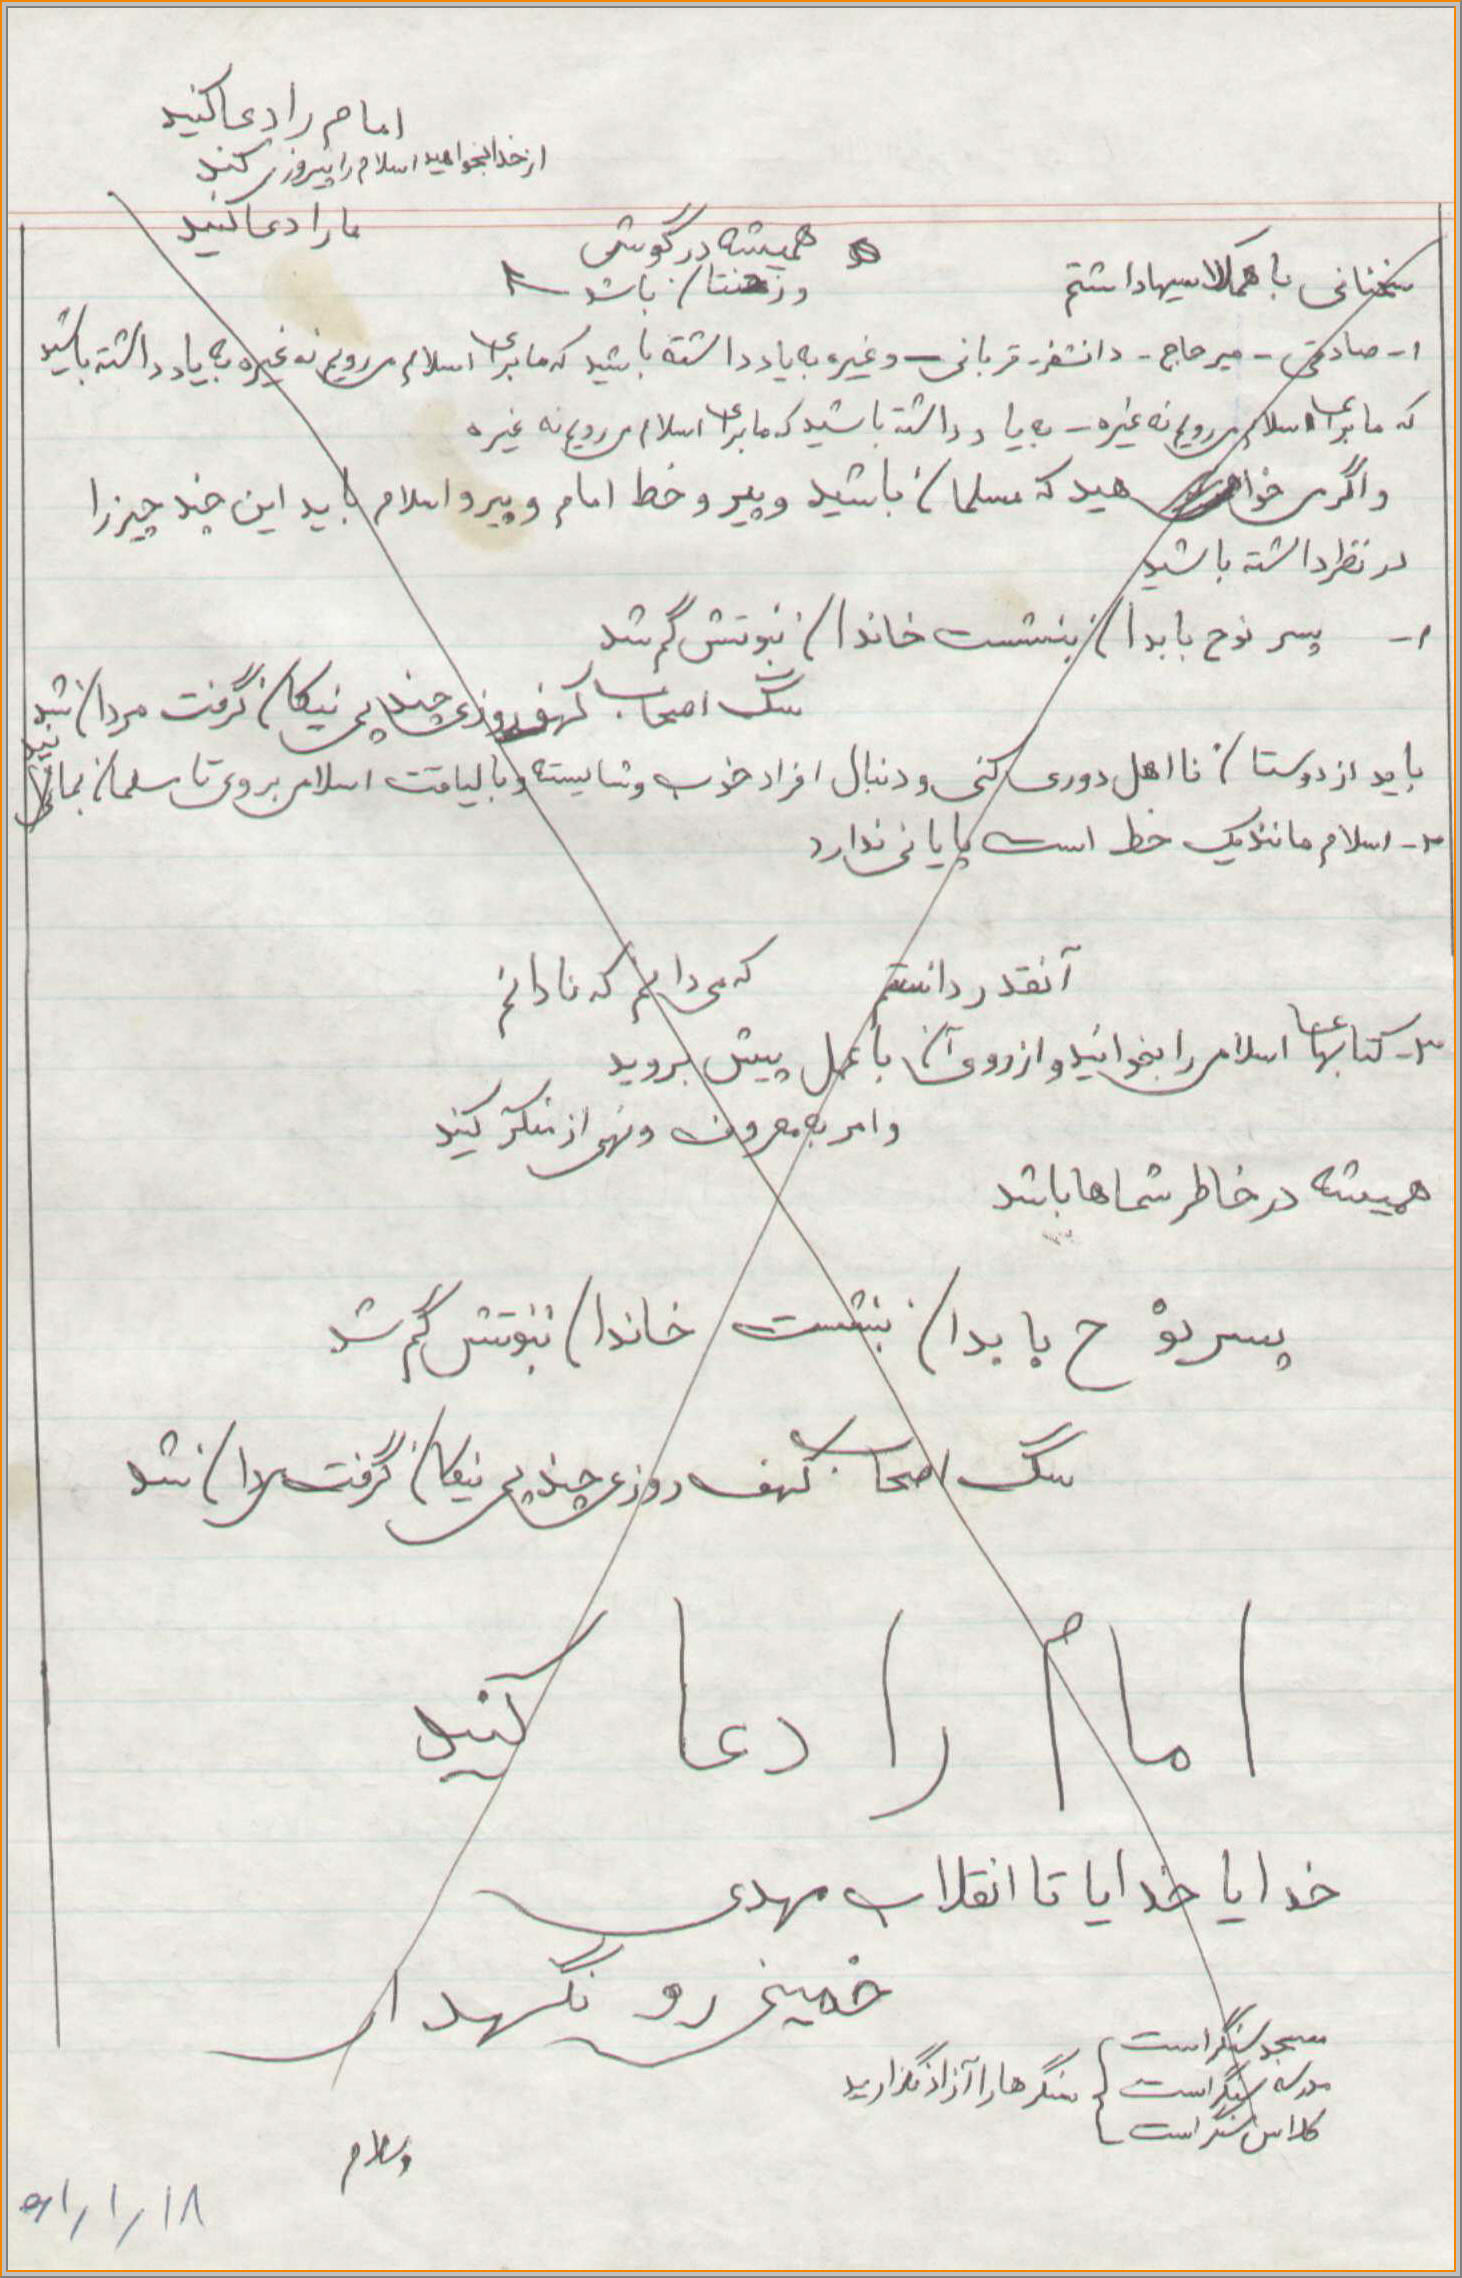 امام را دعا کنید
از خدا بخواهید اسلام را پیروزی کند
ما را دعا کنید
همیشه در گوشی
و زهنتان باشد
سخنانی با همکلاسیها داشتم
۱- صادقی - میر حاج - دانشفر - قربانی - و غیره به یاد داشته باشید که ما برای اسلام می رویم نه غیره به یاد داشته باشید
که ما برای اسلام می رویم نه غیره - به یاد داشته باشید که ما برای اسلام می رویم نه غیره
و اگر می خواهید که مسلمان باشید و پیرو خط امام و پیرو اسلام باید این چند چیز را
در نظر داشته باشید
۱- پسر نوح با بدان بنشست خاندان نبوتش گم شد
سگ اصحاب کهف روزی چند پی نیکان گرفت مردان شد
باید از دوستان نا اهل دوری کنی و دنبال افراد خوب و شایسته و با لیاقت اسلامی بروی تا مسلمان بمانید
۲- اسلام مانند یک خط است پایانی ندارد
آنقدر دانستم که می دانم که نادانم
۳- کتابهای اسلامی را بخوانید و از روی آن با عمل پیش بروید
و امر به معروف و نهی از منکر کنید
همیشه در خاطر شماها باشد
پسر نوح با بدان بنشست خاندان نبوتش گم شد
سگ اصحاب کهف روزی چند پی نیکان گرفت مردان شد
امام را دعا کنید
خدایا خدایا تا انقلاب مهدی
خمینی رو نگهدار
مسجد سنگر است
مدرسه سنگر است
کلاس سنگر است
سنگرها را آزاد نگذارید
وسلام
۶۱/۱/۱۸